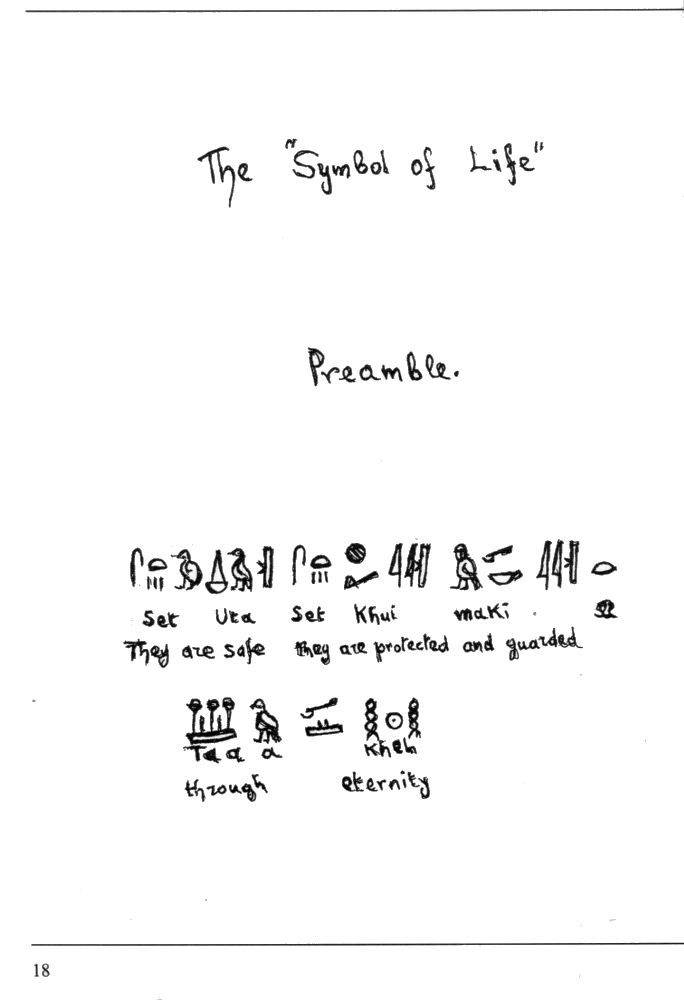 The "Symbol of Life"
Preamble.
Set Uta Set Khui maki .
They are safe they are protected and guarded
Ta a a Kheh
through eternity
18